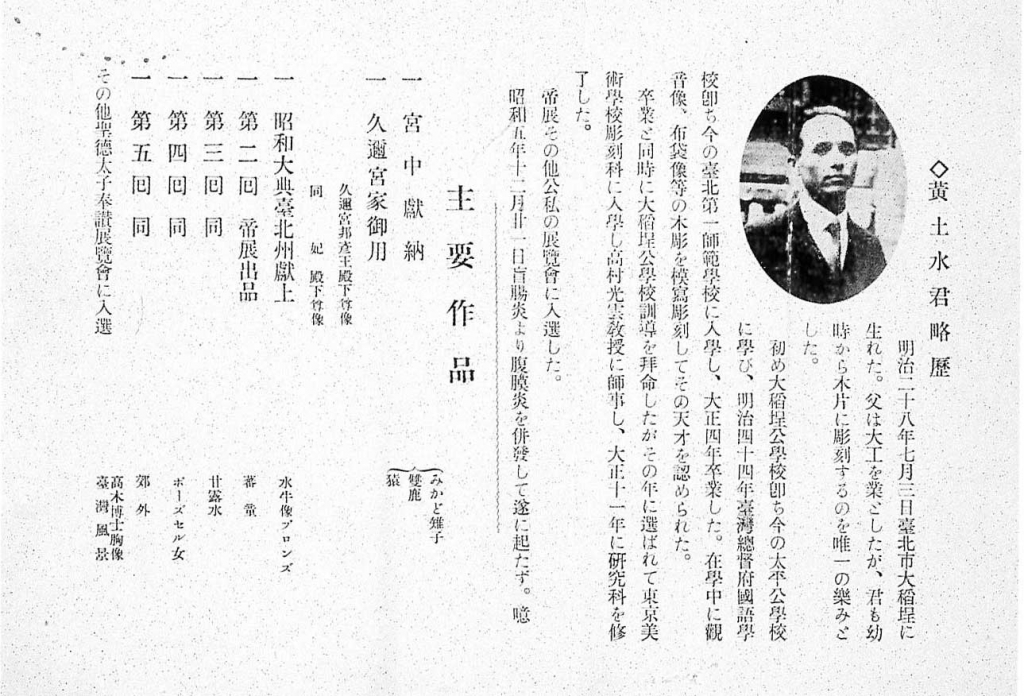 ◇黃土水君略歷
明治二十八年七月三日臺北市大稻埕に
生れた。父は大工を業としたが、君も幼
時から木片に彫刻するのを唯一の樂みと
した。
初め大稻埕公學校卽ち今の太平公學校
に學び、明治四十四年臺灣總督府國語學
校卽ち今の臺北第一師範學校に入學し、大正四年卒業した。在學中に觀
音像、布袋像等の木彫を模寫彫刻してその天才を認められた。
卒業と同時に大稻埕公學校訓導を拜命したがその年に選ばれて東京美
術學校彫刻科に入學し高村光雲敎授に師事し、大正十一年に硏究科を修
了した。
帝展その他公私の展覽會に入選した。
昭和五年十二月廿一日盲腸炎より腹膜炎を併發して遂に起たず。噫
主要作品
一 宮中獻納
みかど雉子
雙鹿
猿
一 久邇宮家御用
久邇宮邦彥王殿下尊像
同 妃 殿下尊像
一 昭和大典臺北州獻上 水牛像ブロンズ
一 第二囘 帝展出品 蕃童
一 第三囘 同 甘露水
一 第四囘 同 ポーズセル女
一 第五囘 同 郊外
その他聖德太子奉讃展覽會に入選
高木博士胸像
臺灣風景